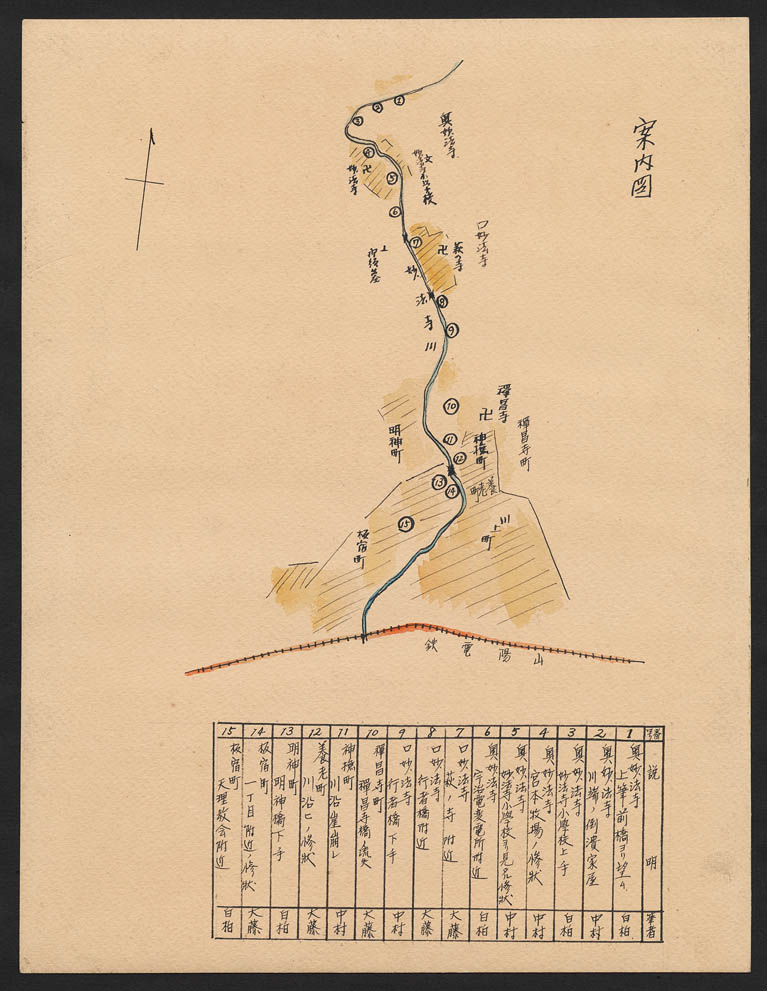 案内圖
奥妙法寺
1
2
3
4
卍
妙法寺
文
妙法寺小学校
5
6
7
卍
萩ノ寺
口妙法寺
妙法寺川
8
9
10
卍
禪昌寺
禪昌寺町
明神町
11
神撫町
12
13
14
養老町
15
板宿町
川上町
山陽電鉄
番号 説明 筆者
1 奥妙法寺 上筆前橋ヨリ望ム 白柏
2 奥妙法寺 川端ノ倒潰家屋 中村
3 奥妙法寺 妙法寺小學校上手 白柏
4 奥妙法寺 宮本牧場ノ慘状 中村
5 奥妙法寺 妙法寺小學校ヨリ見タ慘状 中村
6 奥妙法寺 宇治電変電所附近 白柏
7 口妙法寺 萩ノ寺附近 大藤
8 口妙法寺 行者橋附近 大藤
9 口妙法寺 行者橋下手 中村
10 禪昌寺町 禪昌寺橋流失 大藤
11 神撫町 川沿崖崩レ 中村
12 養老町 川沿ヒノ慘状 大藤
13 明神町 明神橋下手 白柏
14 板宿町 一丁目附近ノ慘状 大藤
15 板宿町 天理教会附近 白柏